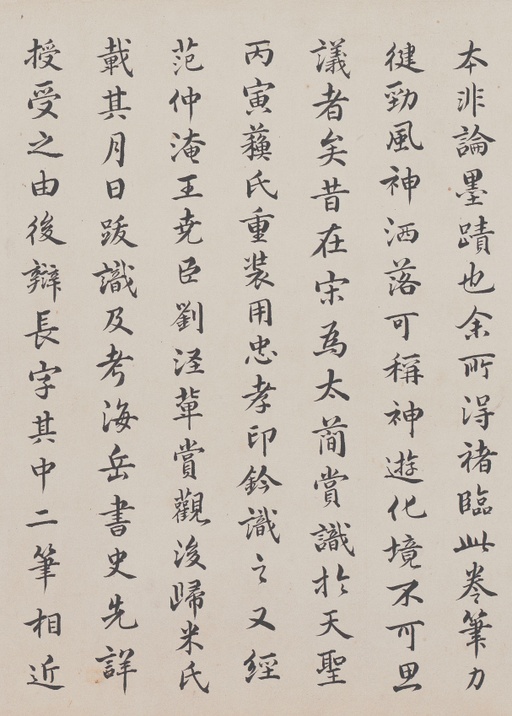 本非論墨蹟也余所得褚臨此卷筆力
徤勁風神洒落可稱神遊化境不可思
議者矣昔在宋為太簡賞識於天聖
丙寅蘓氏重装用忠孝印鈐識之又經
范仲淹王尭臣劉涇軰賞觀後歸米氏
載其月日跋識及考海岳書史先詳
授受之由後辯長字其中二筆相近